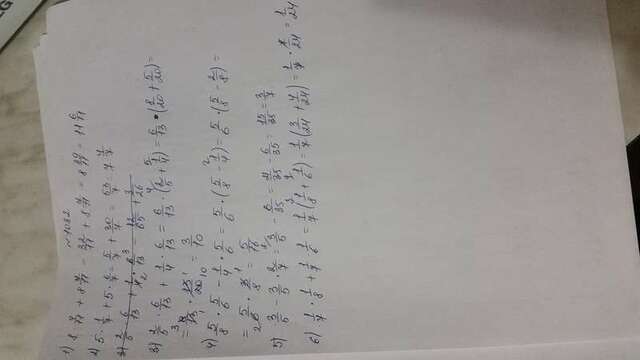 ~1032
1) 8 · 4/11 + 8 4/11 = 32/11 + 8 4/11 = 8 36/11 = 11 3/11
2) 5 · 1/7 + 5 · 6/7 = 5/7 + 30/7
3) 2/5 · 6/13 + 1/4 · 6/13 = 6/13 · (2/5 + 1/4) = 6/13 · (8/20 + 5/20) =
= 6/13 · 13/20 = 3/10
4) 5/8 · 5/6 - 1/4 · 5/6 = 5/6 · (5/8 - 1/4) = 5/6 · (5/8 - 2/8) =
= 5/6 · 3/8 = 5/16
5) 3/5 - 3/5 · 2/7 = 3/5 - 6/35 = 21/35 - 6/35 = 15/35 = 3/7
6) 1/7 · 1/8 + 1/7 · 1/6 = 1/7 (1/8 + 1/6) = 1/7 (3/24 + 4/24) = 1/7 · 7/24 = 1/24